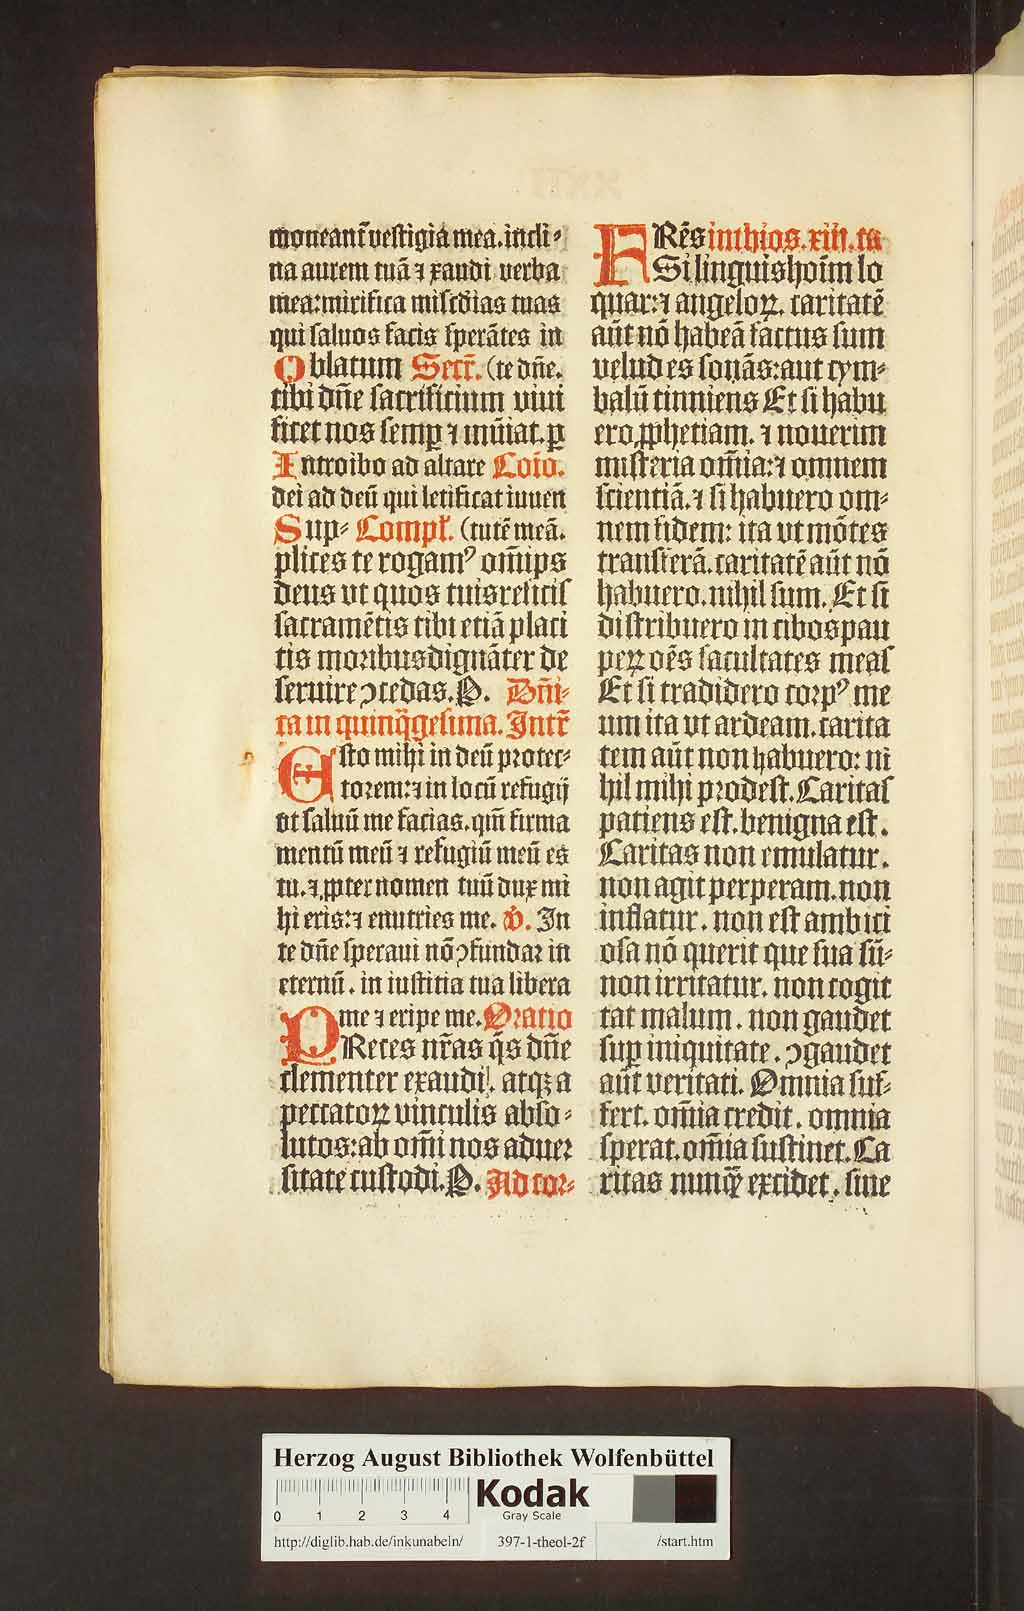 moneant᷑ vestigia mea. incli⸗
na aurem tuā ⁊ exaudi verba
mea: mirifica misc̄dias tuas
qui saluos facis sperātes in
Oblatum Secr̄. (te dn̄e.
tibi dn̄e sacrificium viui
ficet nos semꝑ ⁊ mūiat. ꝑ
Introibo ad altare Cōio.
dei ad deū qui letificat iuuen
Sup⸗ Compl̄. (tutē meā.
plices te rogamꝰ om̄ips
deus vt quos tuis reficis
sacramētis tibi etiā placi
tis moribus dignāter de
seruire ↄcedas. P. Dn̄i⸗
ca in quinq̄gesima. Intr̄
Esto mihi in deū protec⸗
torem: ⁊ in locū refugij
vt saluū me facias. qm̄ firma
mentū meū ⁊ refugiū meū es
tu. ⁊ ꝓpter nomen tuū dux mi
hi eris: ⁊ enutries me. v̉. In
te dn̄e speraui nō ↄfundar in
eternū. in iustitia tua libera
me ⁊ eripe me. Oratio
PReces nr̄as q̄s dn̄e
clementer exaudi. atqꝫ a
peccatoꝝ vinculis abso⸗
lutos: ab om̄i nos aduer
sitate custodi. P. Ad cor⸗
FRēs inthios. xiij. ca
Si linguis hoīm lo
quar: ⁊ angeloꝝ. caritatē
aūt nō habeā factus sum
velud es sonās: aut cym⸗
balū tinniens Et si habu
ero ꝓphetiam. ⁊ nouerim
misteria om̄ia: ⁊ omnem
scientiā. ⁊ si habuero om⸗
nem fidem: ita vt mōtes
transferā. caritatē aūt nō
habuero. nihil sum. Et si
distribuero in cibos pau
peꝝ oēs facultates meas
Et si tradidero corpꝰ me
um ita vt ardeam. carita
tem aūt non habuero: ni
hil mihi prodest. Caritas
patiens est. benigna est.
Caritas non emulatur.
non agit perperam. non
inflatur. non est ambici
osa nō querit que sua sū⸗
non irritatur. non cogit
tat malum. non gaudet
suꝑ iniquitate. ↄgaudet
aūt veritati. Omnia suf⸗
fert. om̄ia credit. omnia
sperat. om̄ia sustinet. Ca
ritas nunqᷓ excidet. siue
Herzog August Bibliothek Wolfenbüttel
0 1 2 3 4
Kodak
Gray Scale
http://diglib.hab.de/inkunabeln/ 397-1-theol-2f /start.htm